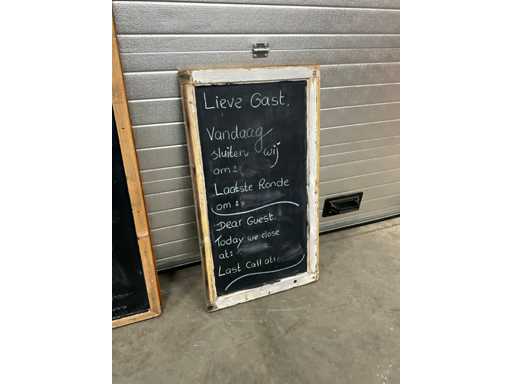 Lieve Gast,
Vandaag
sluiten wij
om :
Laatste Ronde
om :
Dear Guest.
Today we close
at:
Last Call at: